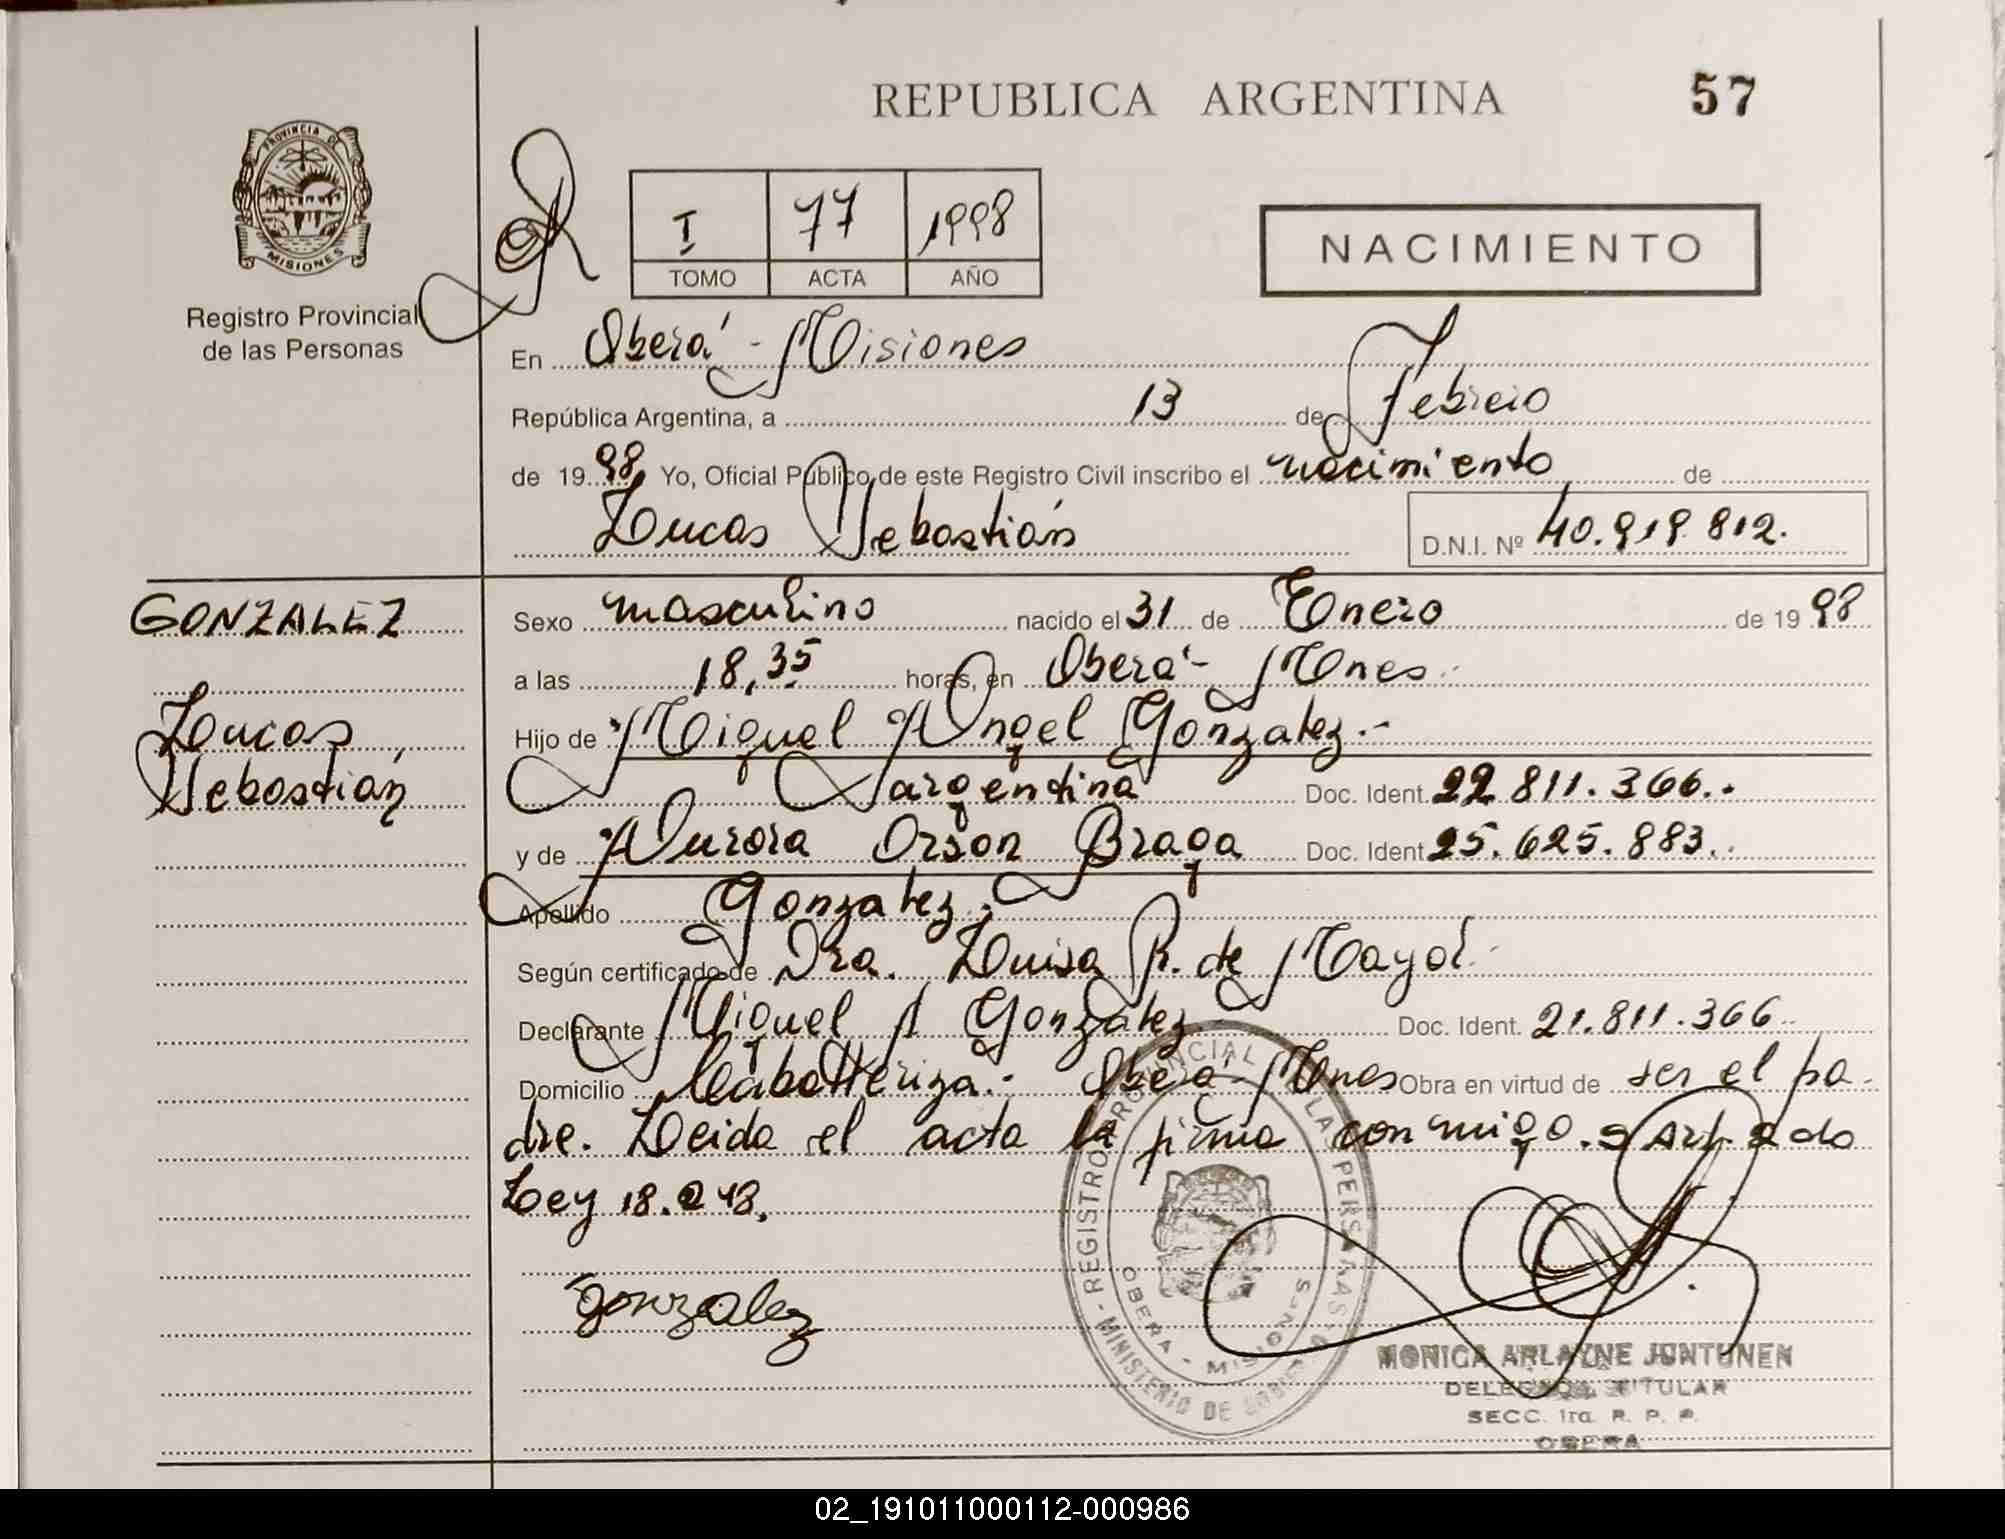 REPUBLICA ARGENTINA
57
PROVINCIA DE
MISIONES
Registro Provincial
de las Personas
I 77 1998
TOMO ACTA AÑO
NACIMIENTO
En Oberá - Misiones
República Argentina, a 13 de Febrero
de 1998, Yo, Oficial Público de este Registro Civil inscribo el nacimiento de
Lucas Sebastián D.N.I. Nº 40.919.812.
GONZALEZ
Lucas
Sebastián
Sexo masculino nacido el 31 de Enero de 1998
a las 18,35 horas, en Oberá - Mnes.
Hijo de Miguel Angel Gonzalez.-
argentina Doc. Ident. 22.811.366.
y de Aurora Orson Braga Doc. Ident. 25.625.883.
Apellido Gonzalez.
Según certificado de Dra. Luisa R. de Mayol.
Declarante Miguel A Gonzalez Doc. Ident. 21.811.366
Domicilio Oberá - Mnes Obra en virtud de ser el pa-
dre. Leida el acta la firma conmigo.
Ley 18.248.
Gonzalez
REGISTRO PROVINCIAL DE LAS PERSONAS
MINISTERIO DE GOBIERNO
OBERA - MISIONES
MONICA ARLAYNE JUNTUNEN
DELEGADA TITULAR
SECC. 1ra. R. P. P.
OBERA
02_191011000112-000986